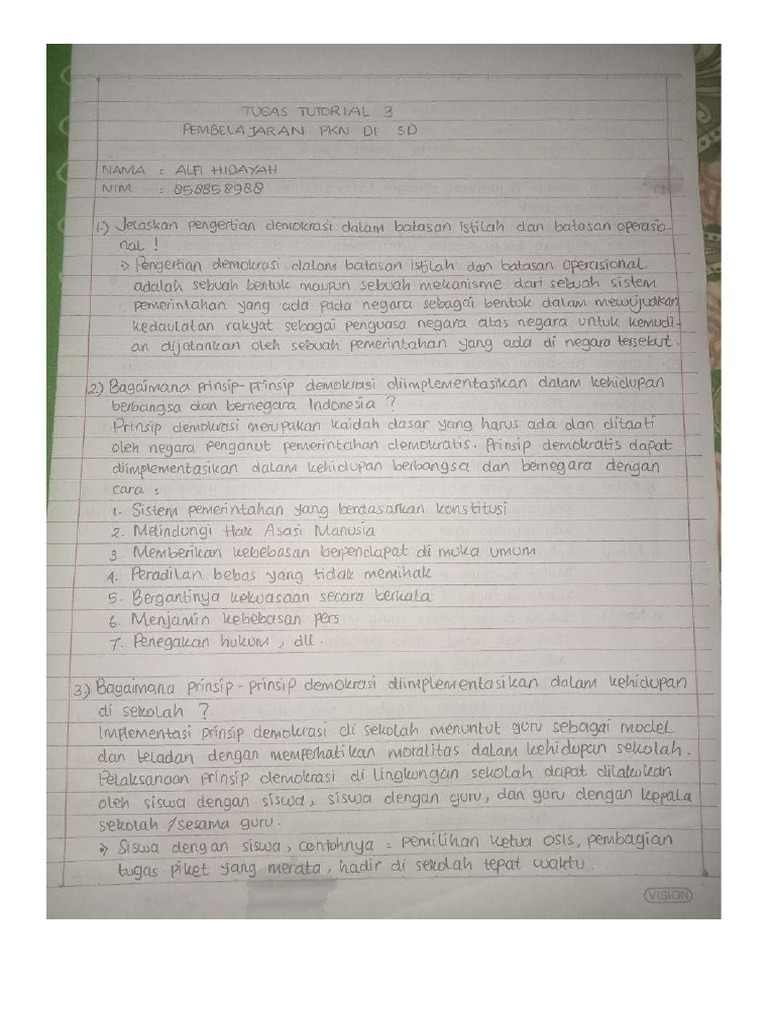 TUGAS TUTORIAL 3
PEMBELAJARAN PKN DI SD
NAMA : ALFI HIDAYAH
NIM : 858858988
1.) Jelaskan pengertian demokrasi dalam batasan istilah dan batasan operasio-
nal !
⇒ Pengertian demokrasi dalam batasan istilah dan batasan operasional
adalah sebuah bentok maupun sebuah mekanisme dari sebuah sistem
pemerintahan yang ada pada negara sebagai bentok dalam mewujudkan
kedaulatan rakyat sebagai penguasa negara atas negara untuk kemudi-
an dijalankan oleh sebuah pemerintahan yang ada di negara tersebut.
2.) Bagaimana prinsip-prinsip demokrasi diimplementasikan dalam kehidupan
berbangsa dan bernegara Indonesia ?
Prinsip demokrasi merupakan kaidah dasar yang harus ada dan ditaati
oleh negara penganut pemerintahan demokratis. Prinsip demokratis dapat
diimplementasikan dalam kehidupan berbangsa dan bernegara dengan
cara :
1. Sistem pemerintahan yang berdasarkan konstitusi
2. Melindungi Hak Asasi Manusia
3. Memberikan kebebasan berpendapat di muka umum
4. Peradilan bebas yang tidak memihak
5. Bergantinya kekuasaan secara berkala
6. Menjamin kebebasan pers
7. Penegakan hukum, dll.
3.) Bagaimana prinsip-prinsip demokrasi diimplementasikan dalam kehidupan
di sekolah ?
Implementasi prinsip demokrasi di sekolah menuntut guru sebagai model
dan teladan dengan memperhatikan moralitas dalam kehidupan sekolah.
Pelaksanaan prinsip demokrasi di lingkungan sekolah dapat dilakukan
oleh siswa dengan siswa, siswa dengan guru, dan guru dengan kepala
sekolah /sesama guru.
⇒ Siswa dengan siswa, contohnya = pemilihan ketua OSIS, pembagian
tugas piket yang merata, hadir di sekolah tepat waktu.
VISION